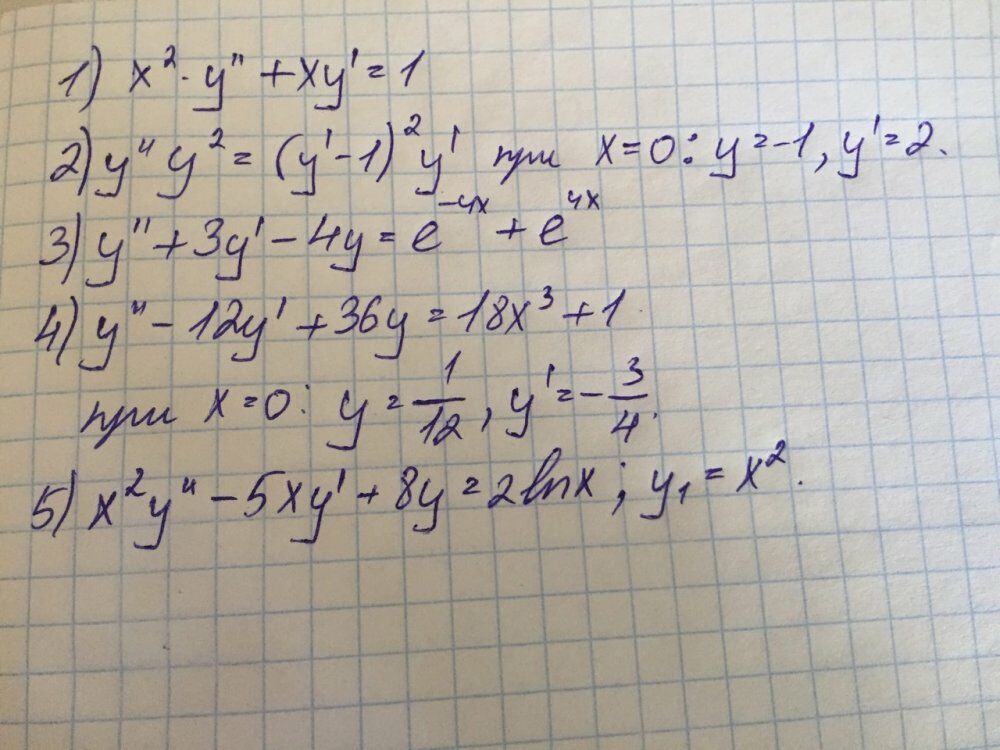 1) x²·y" + xy' = 1
2) y" y² = (y'-1)² y' при x=0: y=-1, y'=2.
3) y" + 3y' - 4y = e⁻⁴ˣ + e⁴ˣ
4) y" - 12y' + 36y = 18x³ + 1
при x=0: y = 1/12, y' = -3/4.
5) x²y" - 5xy' + 8y = 2lnx; y₁ = x².